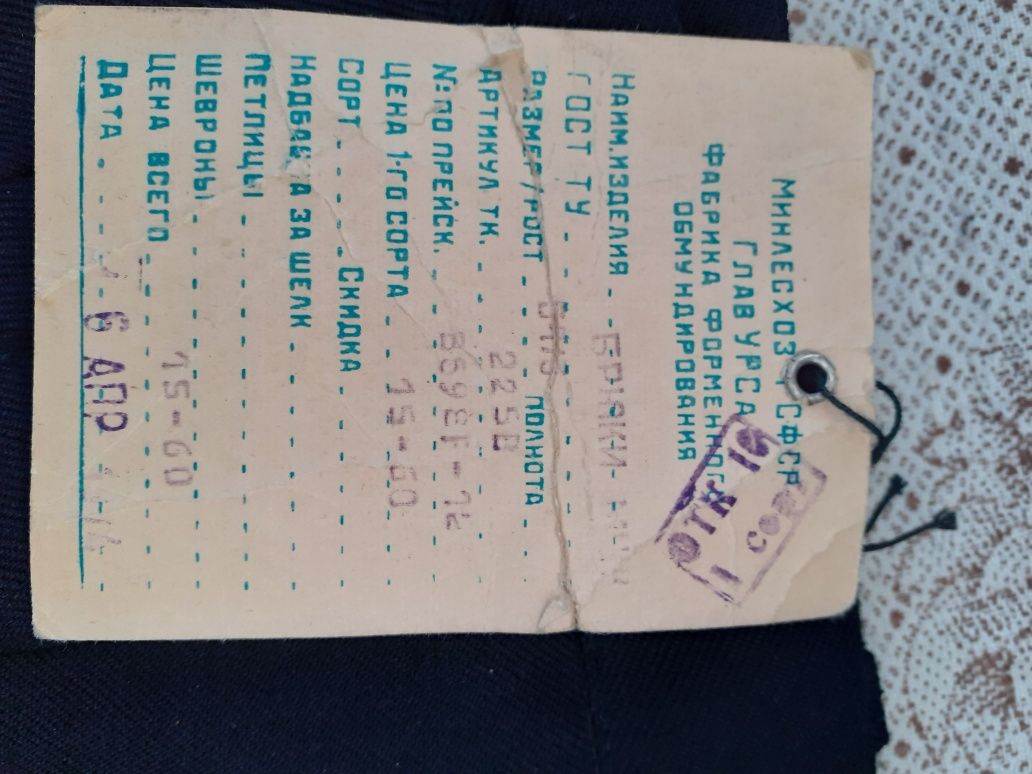 МИНЛЕСХОЗ РСФСР
ГЛАВУРСА
ФАБРИКА ФОРМЕННОГО
ОБМУНДИРОВАНИЯ
ОТК 16
I СОРТ
НАИМ.ИЗДЕЛИЯ - - БРЮКИ
ГОСТ ТУ - - - - - -
РАЗМЕР/РОСТ - - - - ПОЛНОТА - - -
АРТИКУЛ ТК. - - 2258 - - -
№ ПО ПРЕЙСК. - -
ЦЕНА 1-ГО СОРТА - - 15-60 - -
СОРТ - - - - СКИДКА - - - - -
НАДБАВКА ЗА ШЕЛК - - - - - -
ПЕТЛИЦЫ - - - - - - - - -
ШЕВРОНЫ - - - - - - - - -
ЦЕНА ВСЕГО - - 15-60 - -
ДАТА - - - 6 АПР